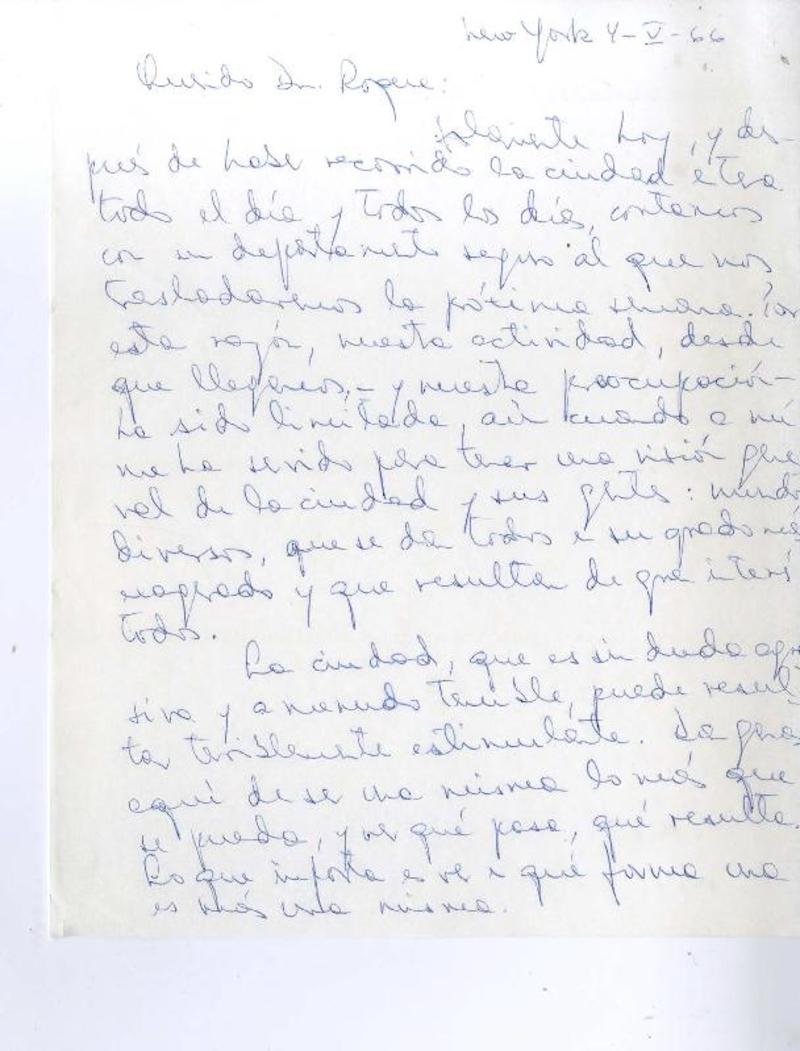 New York 4-V-66
Querido Dr. Roque:
Solamente hoy, y des-
pués de haber recorrido la ciudad entera
todo el día y todos los días, contamos
con un departamento seguro al que nos
trasladaremos la próxima semana. Por
esta razón, nuestra actividad, desde
que llegamos, - y nuestra preocupación -
ha sido limitada, aún cuando a mí
me ha servido para tener una visión gene
ral de la ciudad y sus gentes: mundos
diversos, que se dan todos en su grado más
exagerado y que resultan de gran interés
todos.
La ciudad, que es sin duda agre
siva y a menudo temible, puede resul-
tar terriblemente estimulante. Da ganas
aquí de ser una misma lo más que
se pueda, y ver qué pasa, qué resulta.
Lo que importa es ver en qué forma una
es más una misma.